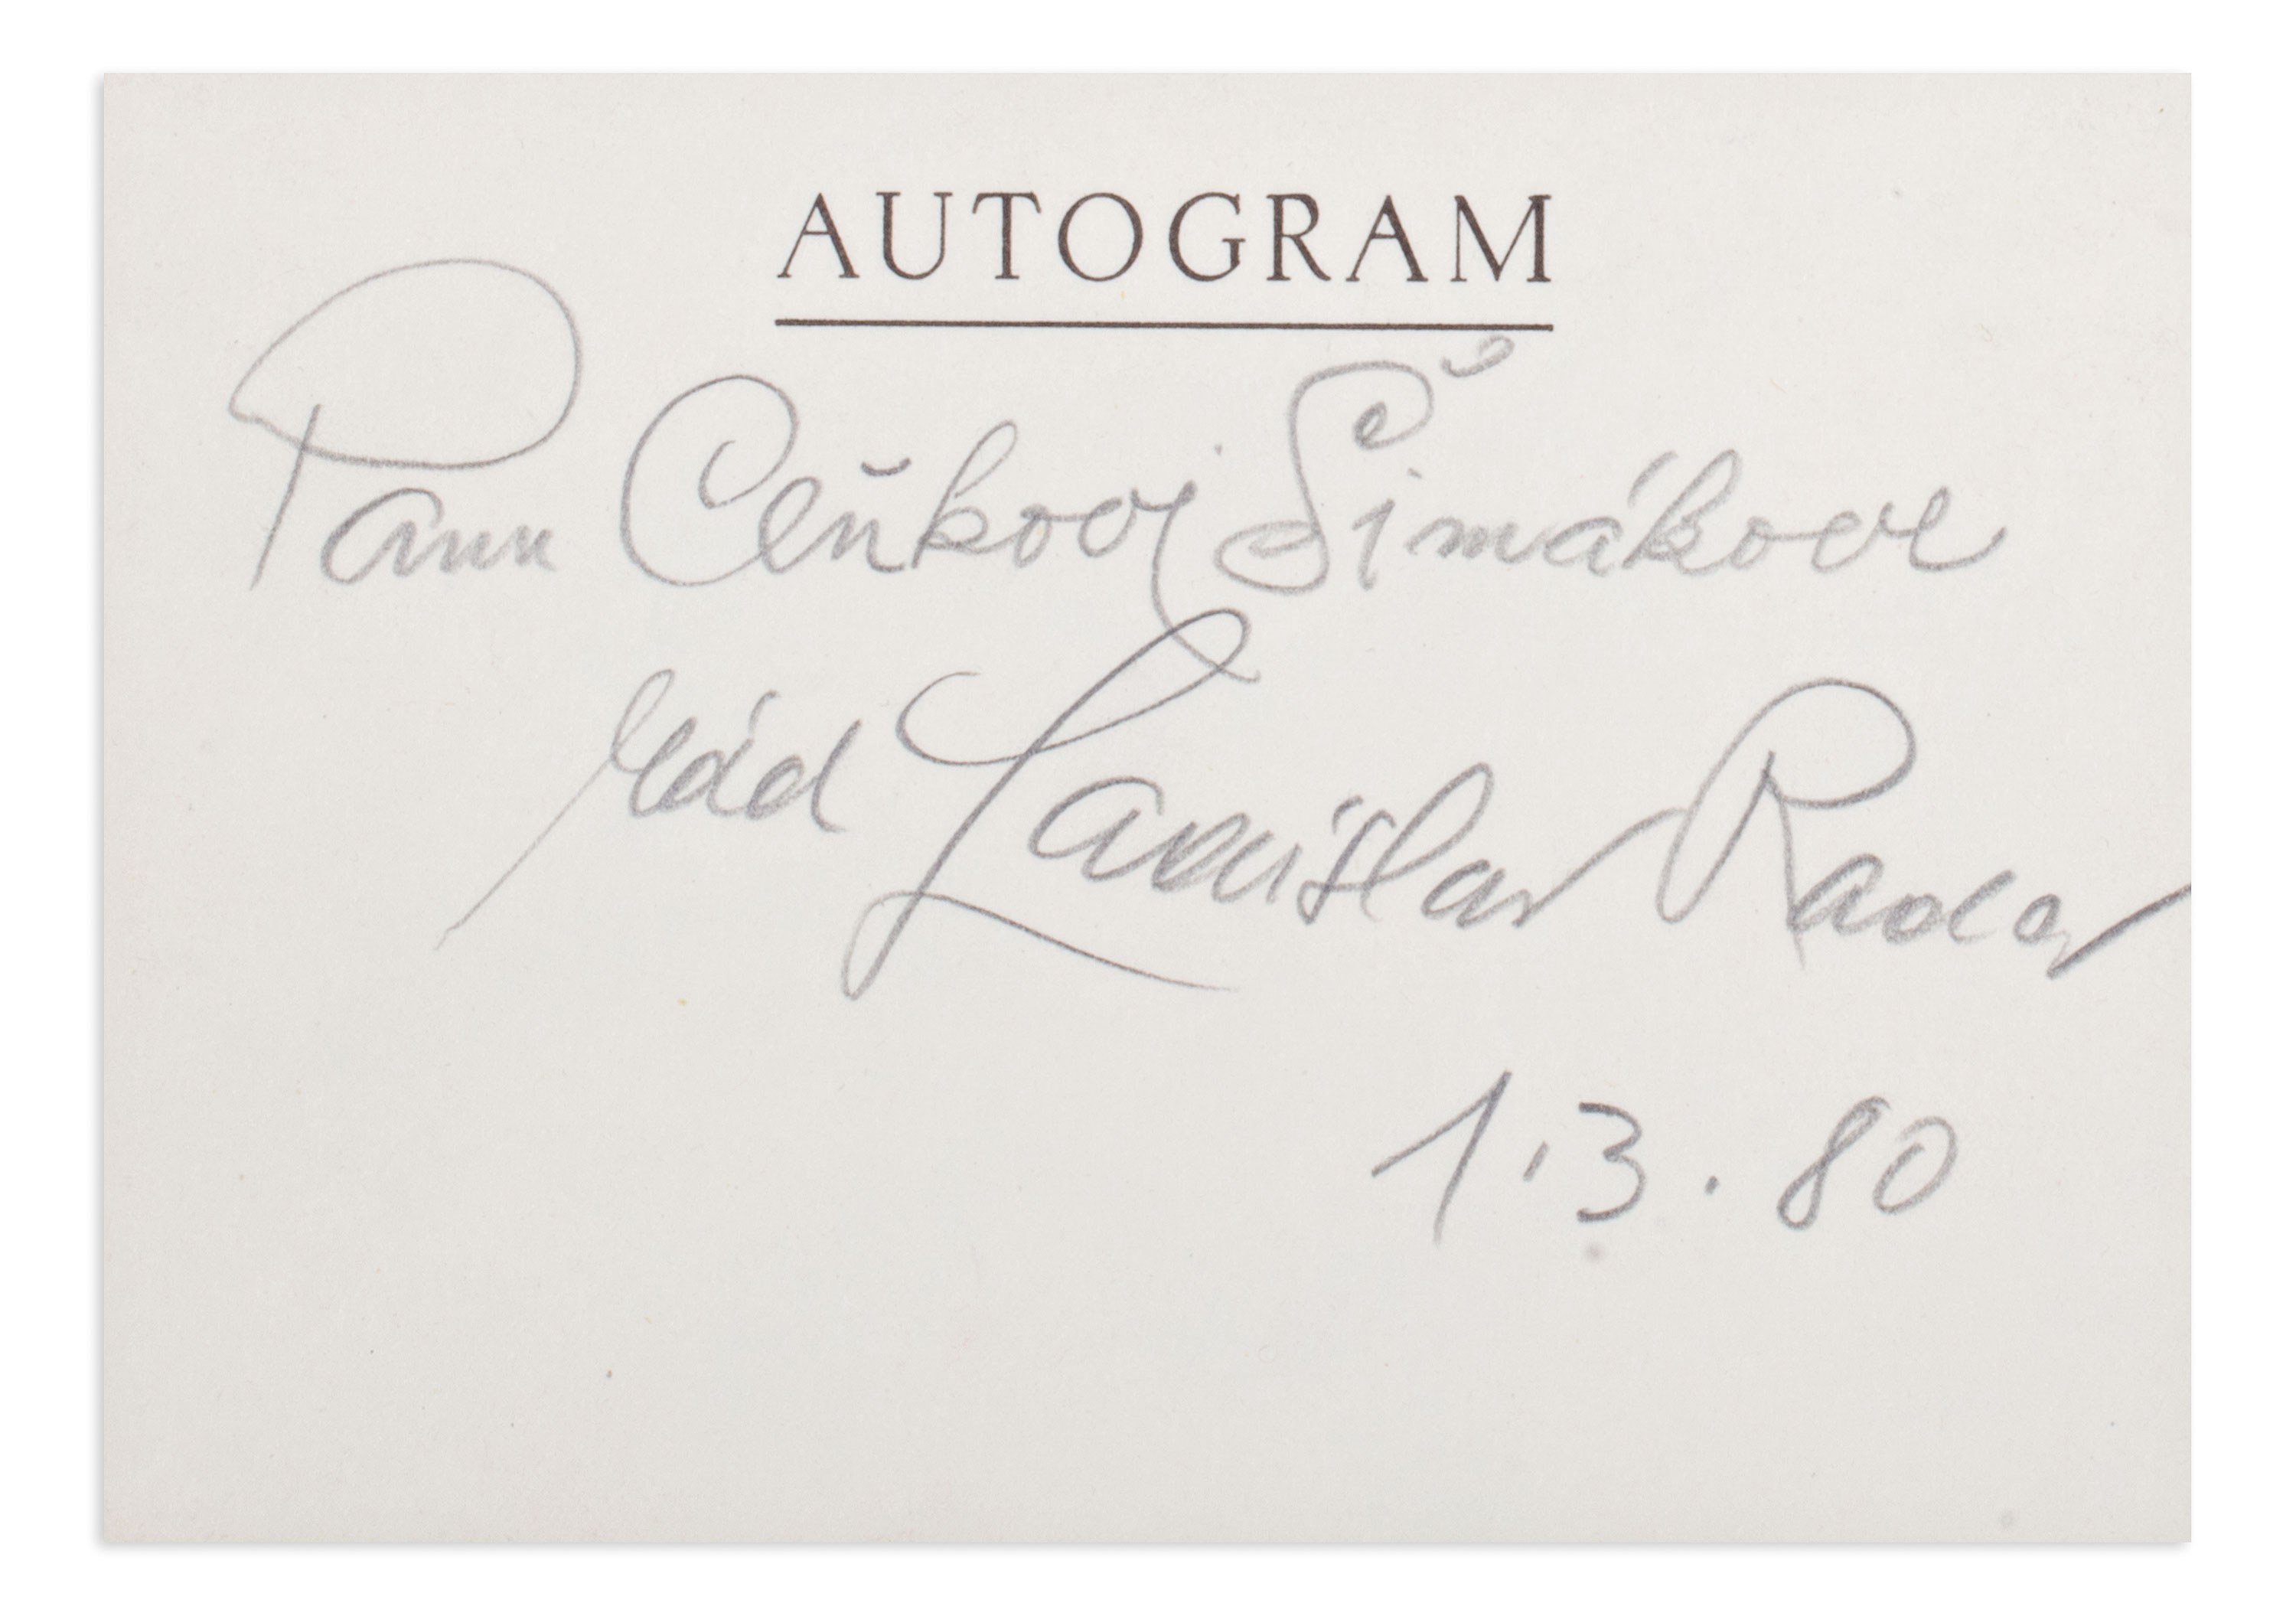 AUTOGRAM
Panu Ceňkovi Šimákovi
rád Ladislav Rada
1.3.80